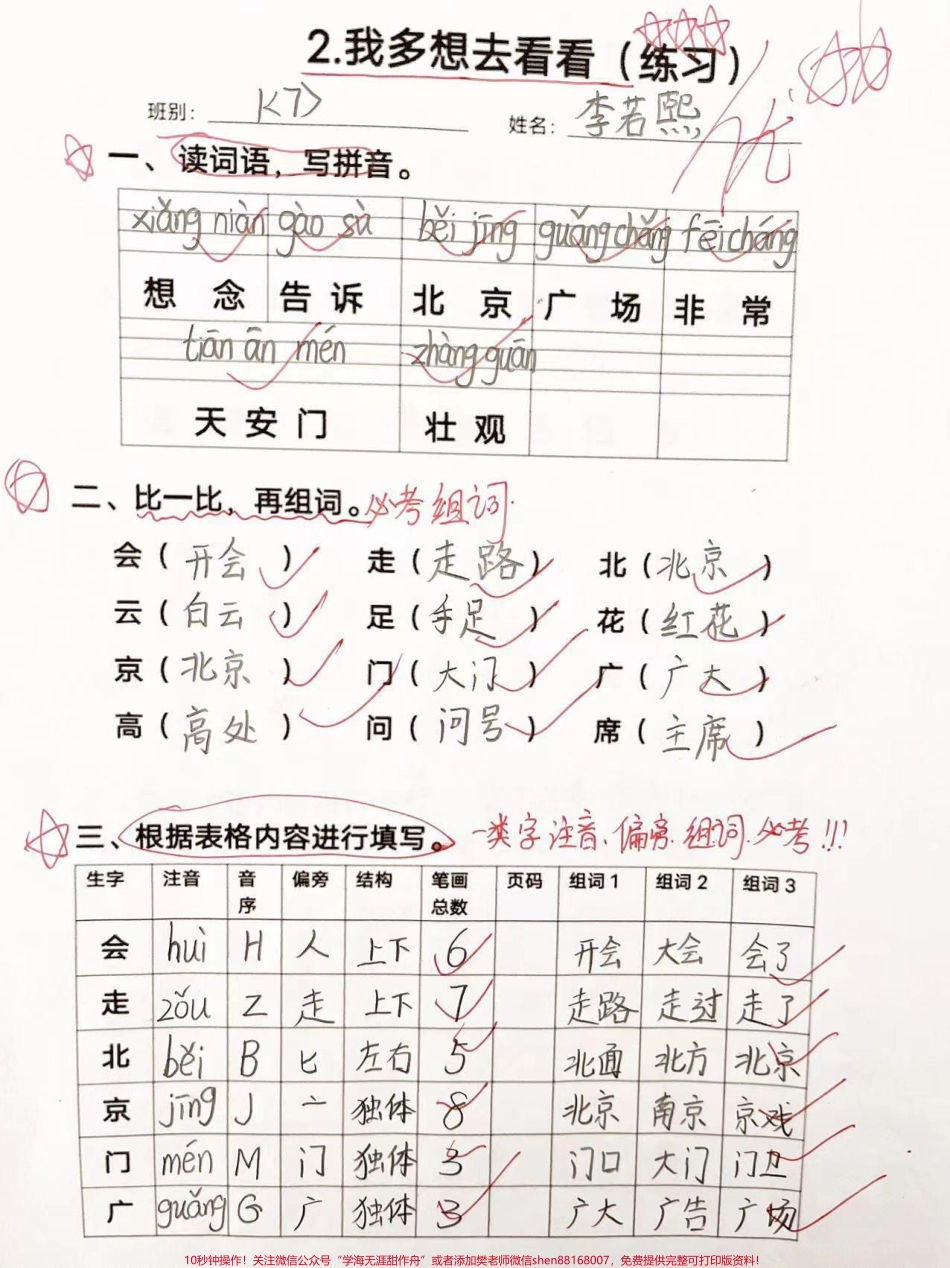 2.我多想去看看（练习）
优
班别： 1<7> 姓名： 李若熙
一、读词语，写拼音。
xiǎng niàn gào sù běi jīng guǎng chǎng fēi cháng
想 念 告 诉 北 京 广 场 非 常
tiān ān mén zhàng guān
天 安 门 壮 观
二、比一比，再组词。必考组词.
会（开会） 走（走路） 北（北京）
云（白云） 足（手足） 花（红花）
京（北京） 门（大门） 广（广大）
高（高处） 问（问号） 席（主席）
三、根据表格内容进行填写。一类字注音、偏旁.组词.必考!!!
生字 注音 音序 偏旁 结构 笔画总数 页码 组词1 组词2 组词3
会 huì H 人 上下 6 开会 大会 会了
走 zǒu Z 走 上下 7 走路 走过 走了
北 běi B 匕 左右 5 北面 北方 北京
京 jīng J 亠 独体 8 北京 南京 京戏
门 mén M 门 独体 3 门口 大门 门卫
广 guǎng G 广 独体 3 广大 广告 广场
10秒钟操作！关注微信公众号“学海无涯甜作舟”或者添加樊老师微信shen88168007，免费提供完整可打印版资料！